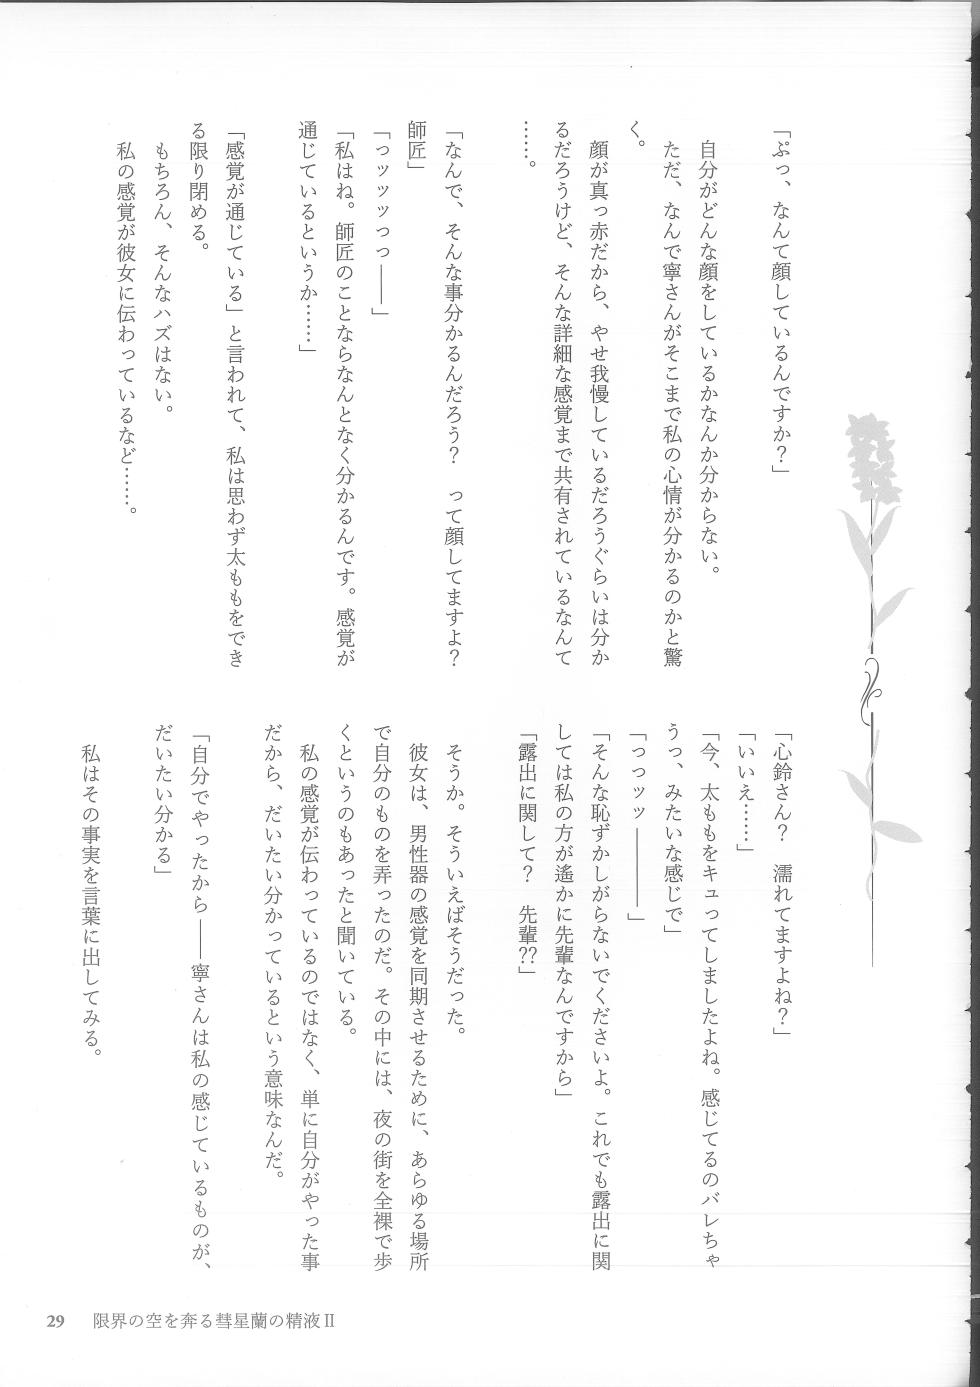 「ぷっ、なんて顔しているんですか？」
自分がどんな顔をしているかなんか分からない。
ただ、なんで寧さんがそこまで私の心情が分かるのかと驚
く。
顔が真っ赤だから、やせ我慢しているだろうぐらいは分か
るだろうけど、そんな詳細な感覚まで共有されているなんて
……。
「なんで、そんな事分かるんだろう？　って顔してますよ？
師匠」
「っッッッっっ――」
「私はね。師匠のことならなんとなく分かるんです。感覚が
通じているというか……」
「感覚が通じている」と言われて、私は思わず太ももをでき
る限り閉める。
もちろん、そんなハズはない。
私の感覚が彼女に伝わっているなど……。
「心鈴さん？　濡れてますよね？」
「いいえ……」
「今、太ももをキュってしましたよね。感じてるのバレちゃ
うっ、みたいな感じで」
「っっッッ――――」
「そんな恥ずかしがらないでくださいよ。これでも露出に関
しては私の方が遙かに先輩なんですから」
「露出に関して？　先輩??」
そうか。そういえばそうだった。
彼女は、男性器の感覚を同期させるために、あらゆる場所
で自分のものを弄ったのだ。その中には、夜の街を全裸で歩
くというのもあったと聞いている。
私の感覚が伝わっているのではなく、単に自分がやった事
だから、だいたい分かっているという意味なんだ。
「自分でやったから――寧さんは私の感じているものが、
だいたい分かる」
私はその事実を言葉に出してみる。
29　限界の空を奔る彗星蘭の精液Ⅱ